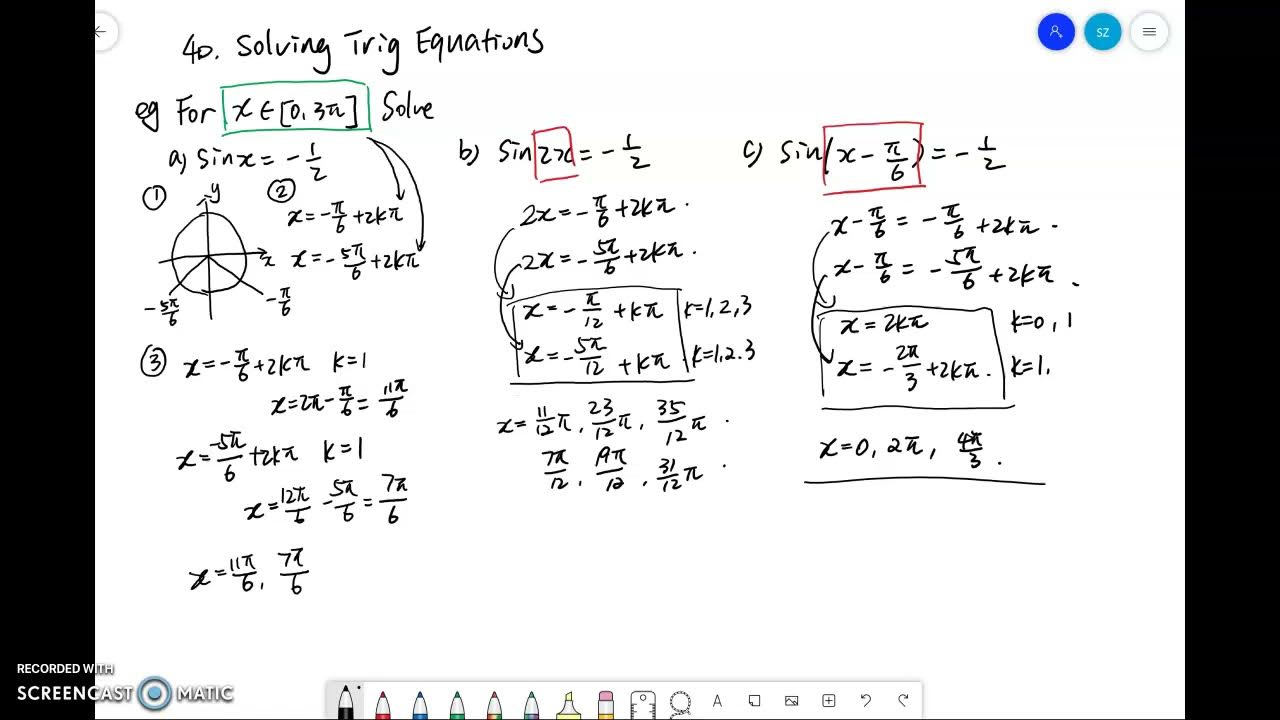 SZ
40. Solving Trig Equations
eg For x∈[0,3π] Solve
a) sinx = -1/2
① y ②
x = -π/6 + 2kπ
x x = -5π/6 + 2kπ
-5π/6 -π/6
③ x = -π/6 + 2kπ k=1
x = 2π - π/6 = 11π/6
x = -5π/6 + 2kπ k=1
x = 12π/6 - 5π/6 = 7π/6
x = 11π/6, 7π/6
b) sin2x = -1/2
2x = -π/6 + 2kπ.
2x = -5π/6 + 2kπ.
x = -π/12 + kπ k=1,2,3
x = -5π/12 + kπ. k=1,2.3
x = 11/12π, 23/12π, 35/12π .
7π/12, 19π/12, 31/12π .
c) sin(x - π/6) = -1/2
x - π/6 = -π/6 + 2kπ.
x - π/6 = -5π/6 + 2kπ.
x = 2kπ k=0,1
x = -2π/3 + 2kπ. k=1.
x = 0, 2π, 4π/3.
RECORDED WITH
SCREENCAST MATIC
A